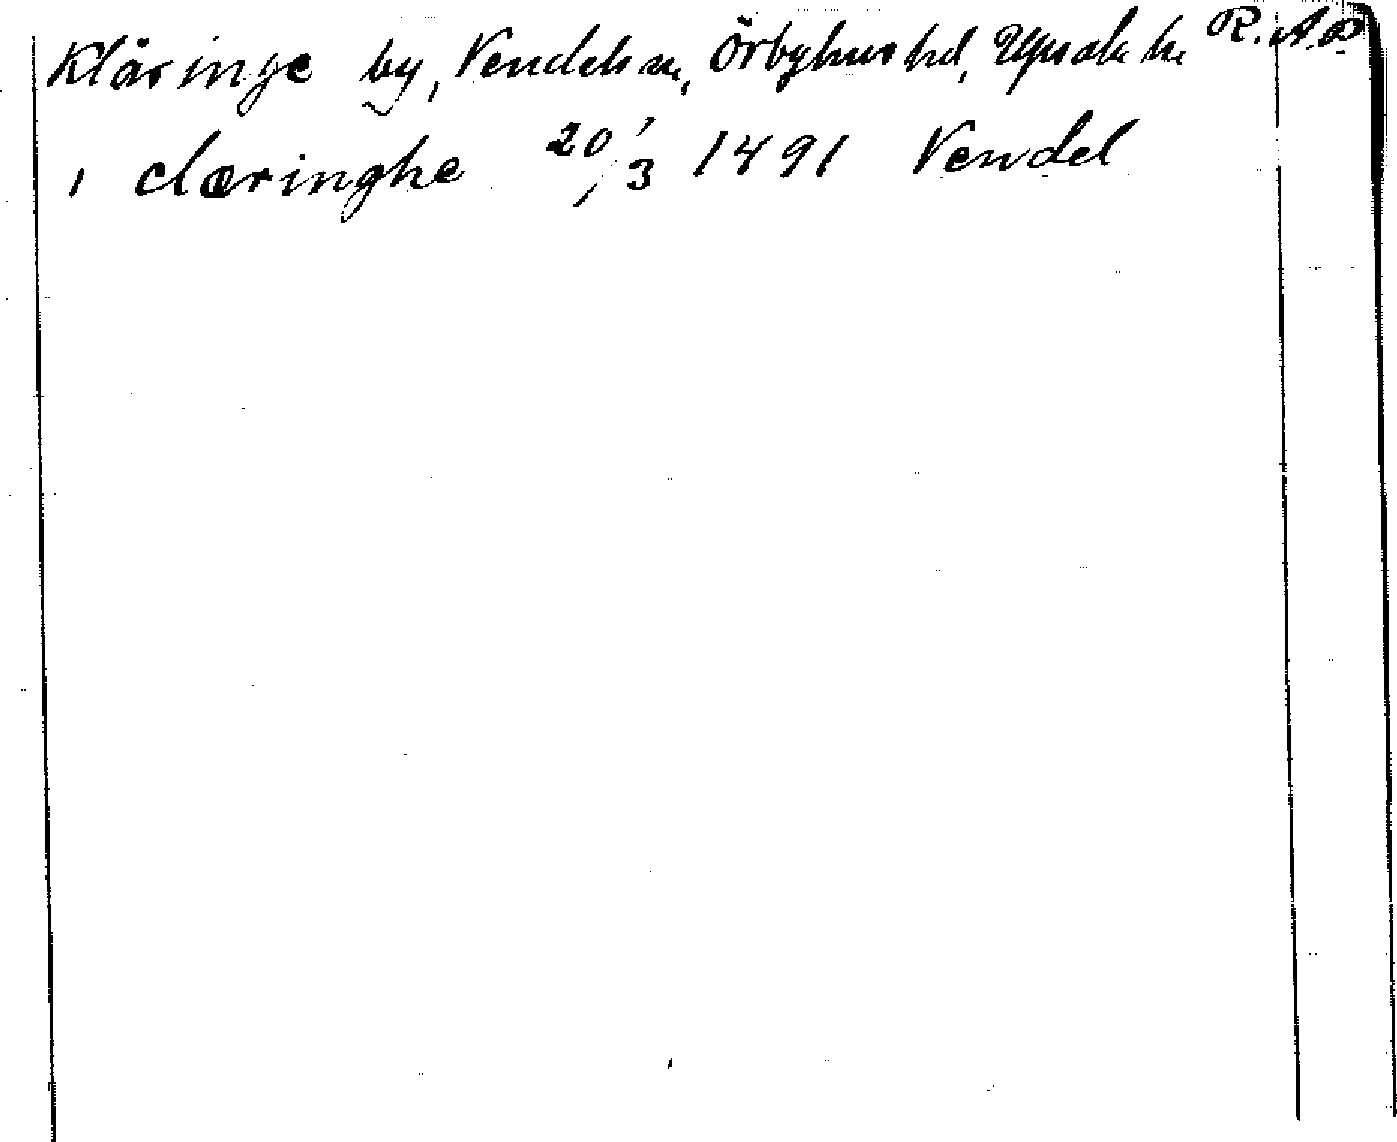 Kläringe by, Vendels sn, Örbyhus hd, Upsala ln R.A.P
i clæringhe 20/3 1491 Vendel